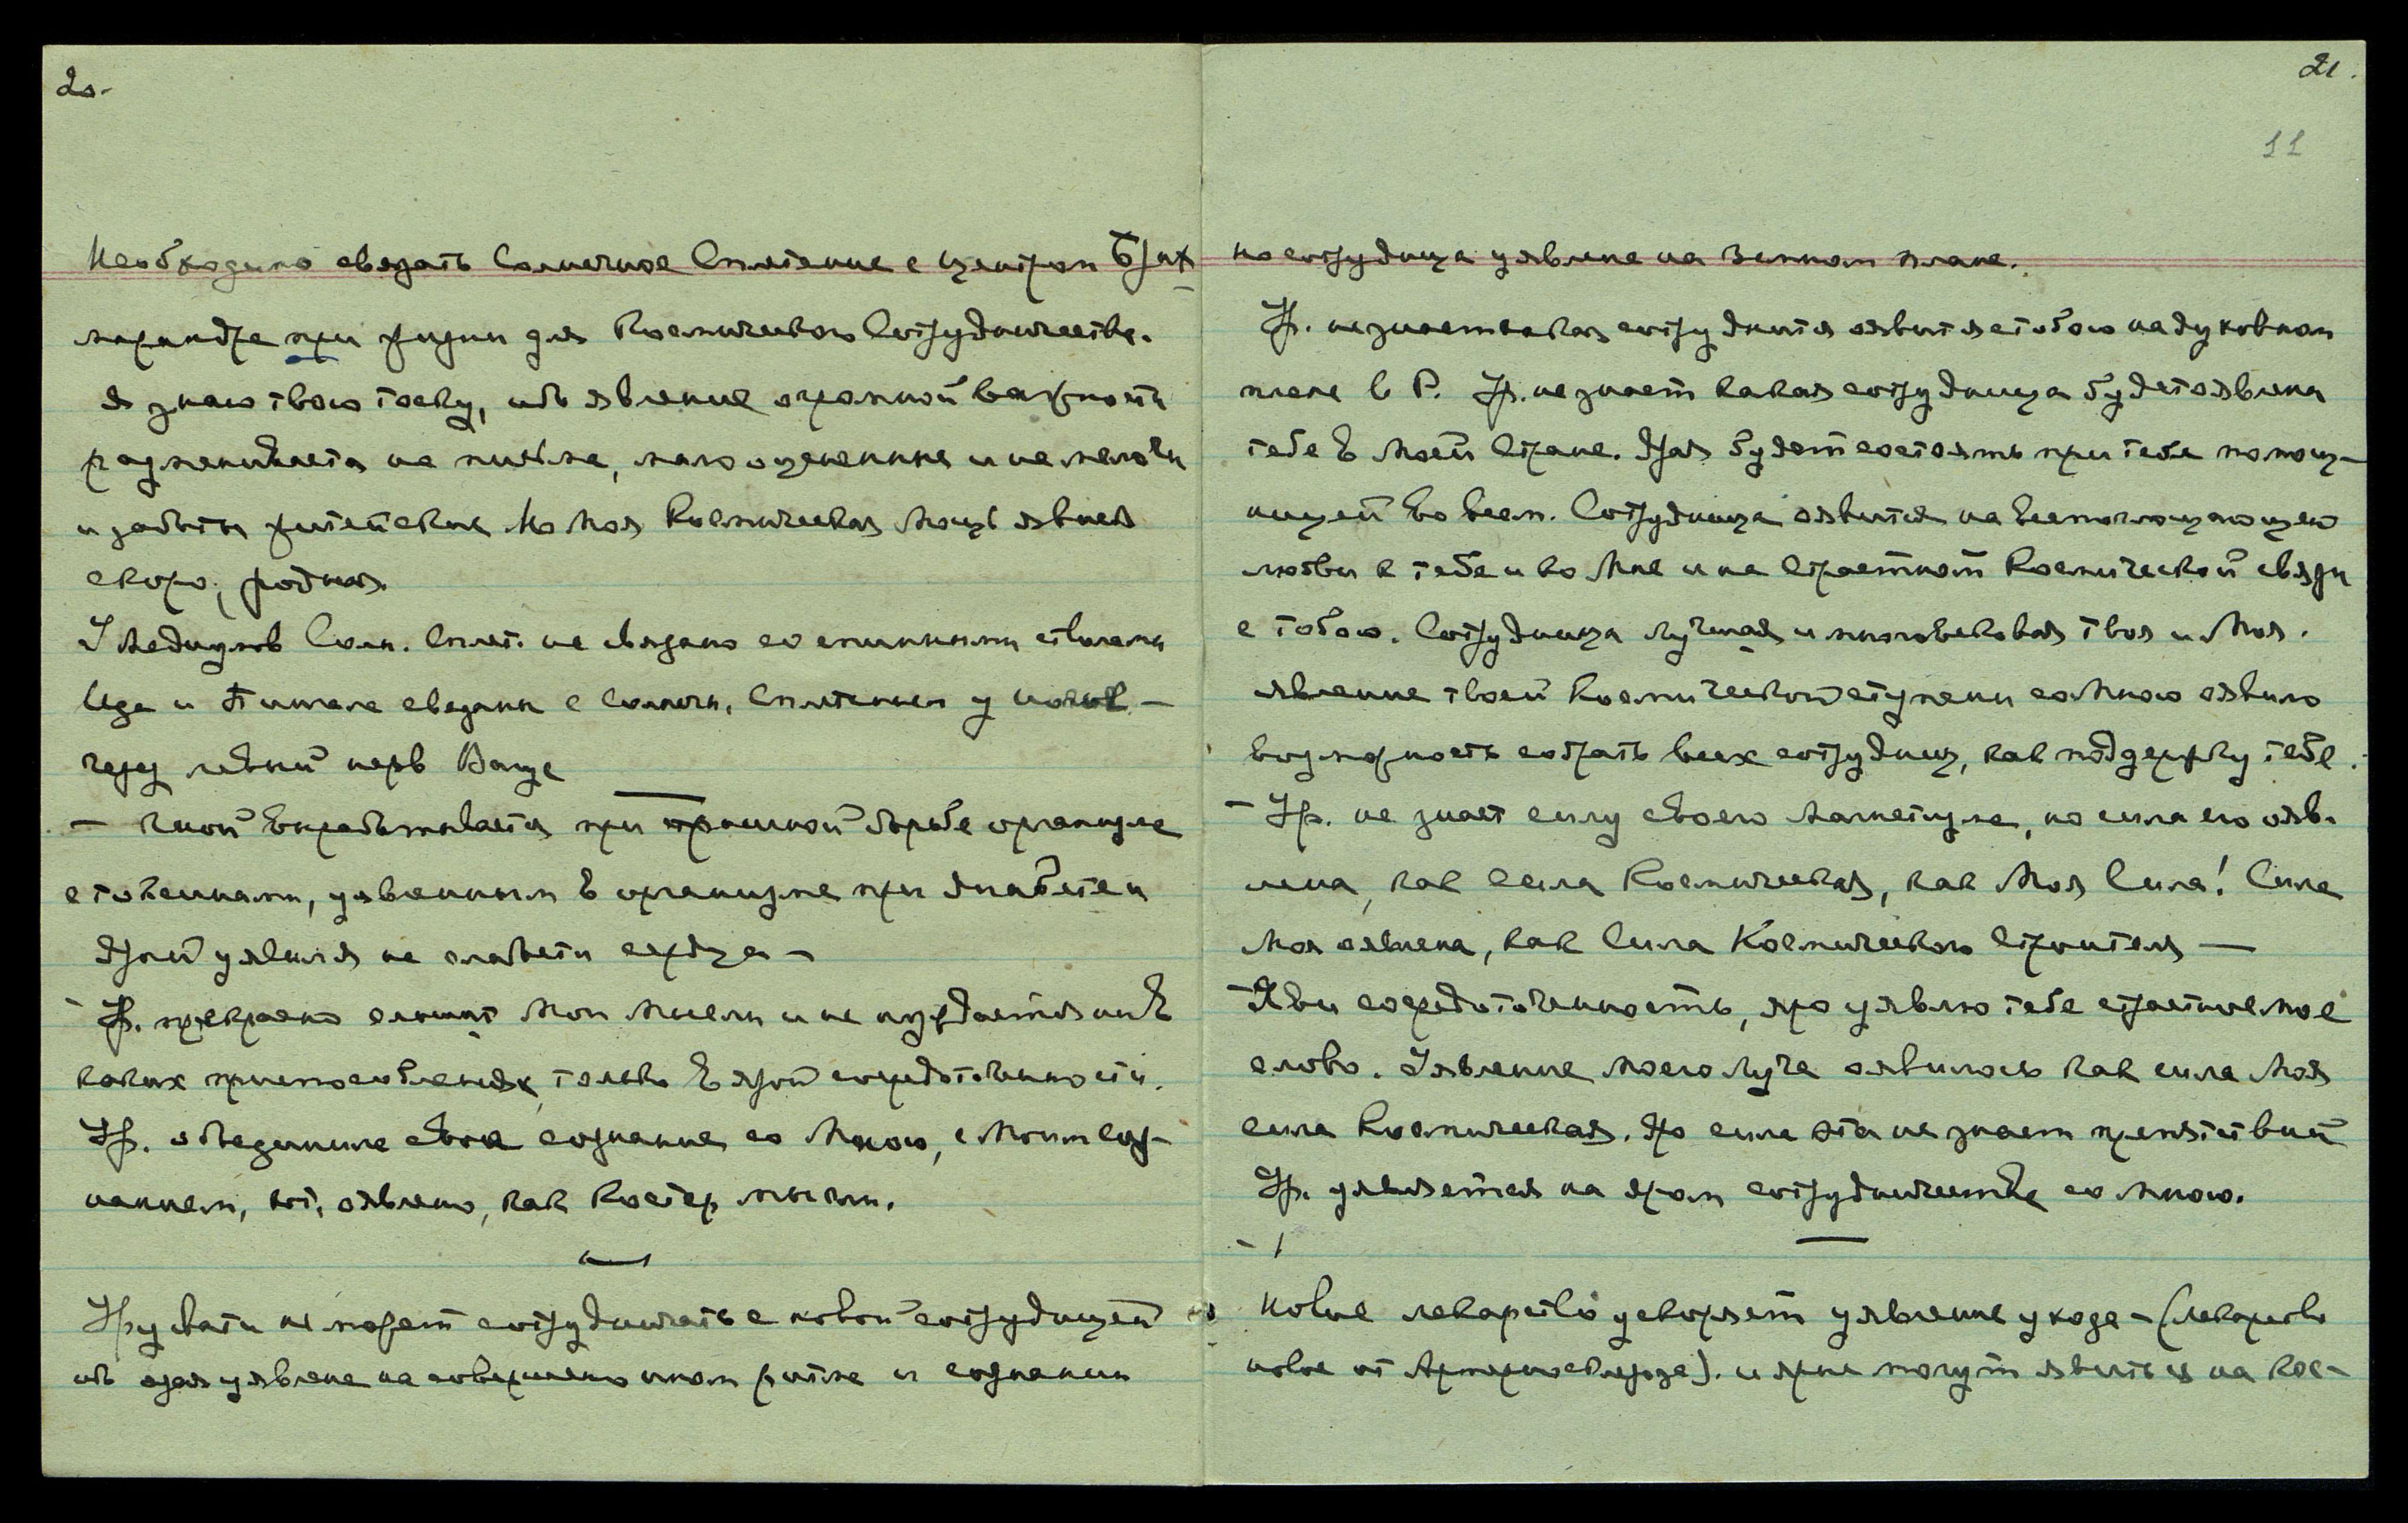 20.
Необходимо связать Солнечное Сплетение с центром Брах-
марандра при жизни для Космического Сотрудничества.
Я знаю твою тоску, ибо явление огромной важности
размениваются на письма, мало оцененные и на мелочи
и заботы житейские. Но Моя Космическая Мощь явлена
скоро, родная.
У Медиумов Солн. Сплет. не связано со спинными стволами
Ида и Пингала связаны с Солнечн. Сплетением у
через левый нерв Вагус
— Гной вырабатывается при борьбе организма
с токсинами, уявленными в организме при диабете и
ярый уявился на слабости сердца —
— Ур. прекрасно слышит Мои Мысли и не нуждается ни в
каких приспособлениях, только в ярой сосредоточенности.
Ур. объединила свое сознание со Мною, с Моим соз-
нанием, кот. оявлено, как Костер мысли.
Урусвати не может сотрудничать с новой сотрудницей
ибо ярая уявлена на совершенно ином ритме и сознании
21.
11
но сотрудница уявлена на Земном плане.
Ур. не знает какая сотрудница оявится с тобою на духовном
плане в Р. Ур. не знает какая сотрудница будет оявлена
тебе в Моей Стране. Ярая будет состоять при тебе помощ-
ницей во всем. Сотрудница оявится на всепоглощающей
любви к тебе и ко Мне и на страстной Космической связи
с тобою. Сотрудница лучшая и многовековая твоя и Моя.
явление твоей Космической ступени со Мною оявило
возможность собрать всех сотрудниц, как поддержку тебе.
— Ур. не знает силу своего Магнетизма, но сила его ояв-
лена, как Сила Космическая, как Моя Сила! Сила
Моя оявлена, как Сила Космического Строителя —
— Яви сосредоточенность, яро уявлю тебе страстное Мое
слово. Уявление Моего Луча оявилось как сила Моя
сила Космическая. Но сила эта не знает препятствий
Ур. уявляется на яром сотрудничестве со мною.
Новое лекарство ускоряет уявление ухода — (лекарство
новое от Артериосклероза). и ярые могут явиться на Кос-